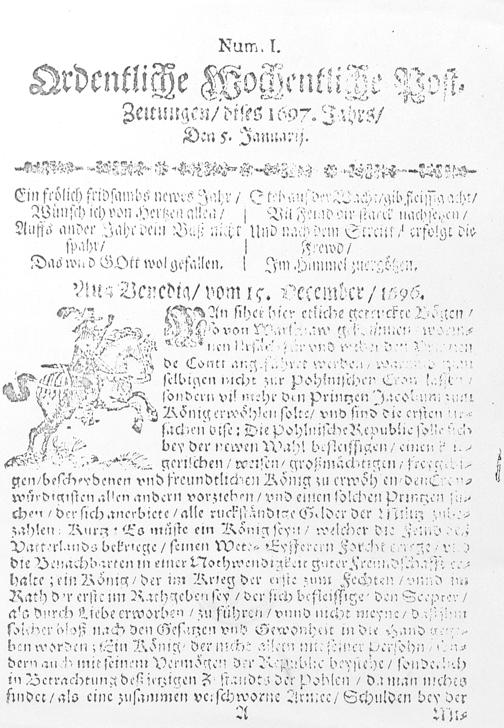 Num. I.
Ordentliche Wochentliche Post-
Zeitungen/ dises 1697. Jahrs/
Den 5. Januarij.
Ein frölich fridsambs newes Jahr /
Wünsch ich von Hertzen allen /
Auffs ander Jahr dem Buß nicht
spahr /
Das wird GOtt wol gefallen.
Steh auf der Wacht/gib fleissig acht/
Vil Feind dir starck nachsetzen /
Und nach dem Streitt / erfolgt die
Frewd /
Im Himmel zuergötzen.
Auß Venedig / vom 15. December / 1696.
MAn sihet hier etliche getruckte Bögen /
so von Warschaw
nen Ursachen für und wider den Printzen
de Conti angeführet werden /
selbigen nicht zur Pohlnischen Cron lassen /
sondern vil mehr den Printzen Jacobum zum
König erwöhlen solte / und sind die ersten Ur-
sachen dise: Die Pohlnische Republic solle sich
bey der newen Wahl befleissigen / einen
/ weisen / großmächtigen /
gen/bescheydenen und freundtlichen König zu erwöhlen
würdigsten allen andern vorziehen / und einen solchen Printzen su-
chen / der sich anerbiete / alle ruckständige Gelder der Militz zube-
zahlen: Kurtz: Es müste ein König seyn / welcher die Feind deß
Vatterlands bekriege / seinen Forcht / und
die Benachbarten in einer Nothwendigkeit guter Freundschafft er-
halte ; ein König / der im Krieg der erste zum Fechten / unnd im
Rath der erste im Rathgeben sey / der sich befleissige den Scepter /
als durch Liebe erworben / zu führen / unnd nicht meyne / daß ihm
solcher bloß nach den Gesätzen und Gewonheit in die Hand gege-
ben worden ; Ein König / der nicht allein mit seiner Persohn / son-
dern auch mit seinem Vermögen der Republic beystehe / sonderlich
in Betrachtung deß jetzigen Zustandts der Pohlen / da man nichts
findet / als eine zusammen verschworne Armee / Schulden bey der
A
Mi-